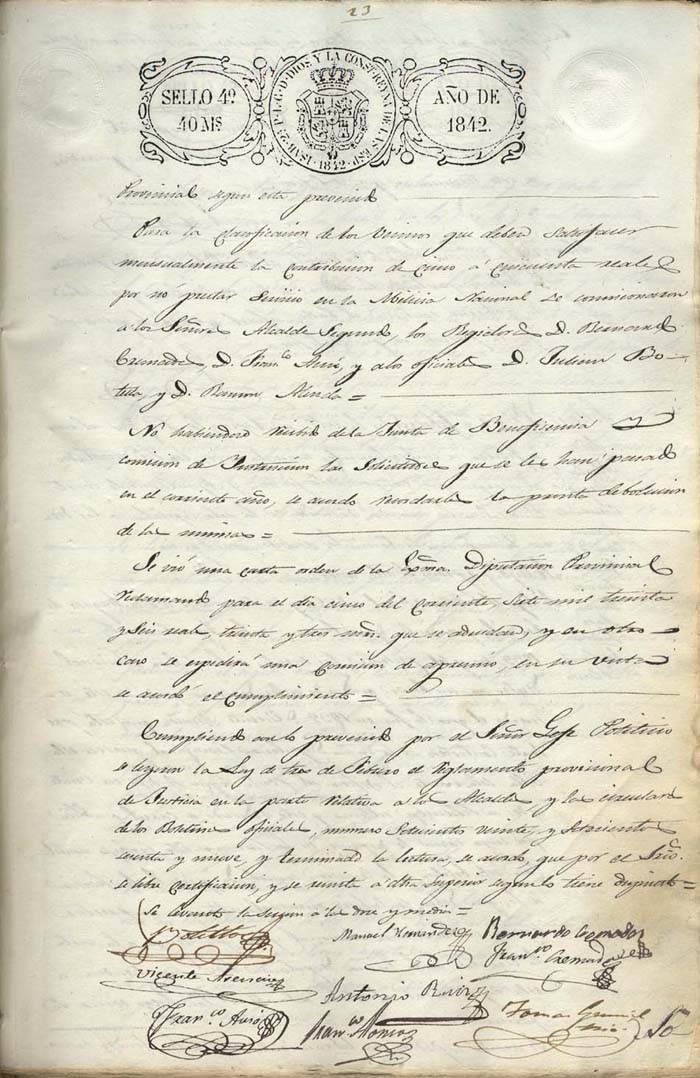 23
SELLO 4º
40 Mˢ
ISAB. 2ª P. L. G. D. DIOS Y LA CONST. REYNA DE LAS ESP. 1842
AÑO DE
1842.
Provincial segun esta prevenido
Para la clasificacion de los Vecinos que deben satisfacer
mensualmente la contribucion de cinco á cincuenta reales
por nó prestar Servicio en la Milicia Nacional se comicionaron
á los Señores Alcalde Segundo, los Regidores D. Bernardo
Cremades, D. Franᶜᵒ Aursó, y alos oficiales D. Julian Bo-
tella, y D. Ramon Alenda =
No habiendose recibido dela Junta de Beneficencia y
comicion de Instruccion las Solicitudes que se les han pasado
en el corriente año, se acordó recordarles la pronta debolucion
de las mismas =
Se vió una carta orden de la Exma. Diputacion Provincial
reclamando para el dia cinco del corriente, siete mil treinta
y seis reales, treinta y tres mrs. que se adeudan, y en otro
caso se expedirá una comicion de apremio, en su vista
se acordó el cumplimiento =
Cumpliendo con lo prevenido por el Señor Gefe Politico
se leyeron la Ley de tres de Febrero el reglamento provicional
de Justicia en la parte relativa a los Alcaldes, y las circulares
de los Boletines oficiales, numero Setecientos veinte, y Setecientos
y nueve, y terminada la lectura, se acordó, que por el Srio.
se libre certificacion, y se remita á dha Superior segun lo tiene dispuesto =
Se levantó la sesion a las doce y media =
Botella
Manuel Hernandez
Bernardo Cremades
Franᶜᵒ Cremades
Vicente Asencio
Antonio Ruiz
Franᶜᵒ Aursó
Franᶜᵒ Alonso
Tomas
Srio.